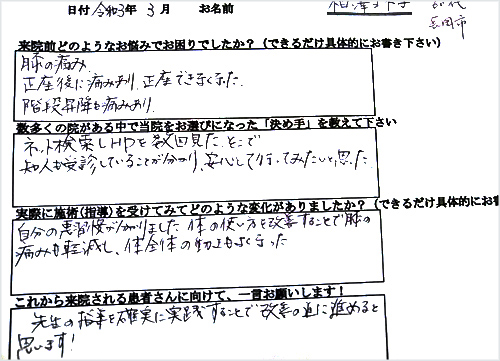 日付 令和3年 3 月 お名前
60代
長岡市
来院前どのようなお悩みでお困りでしたか？（できるだけ具体的にお書き下さい）
膝の痛み
正座後に痛みあり、正座できなくなった
階段昇降も痛みあり
数多くの院がある中で当院をお選びになった「決め手」を教えて下さい
ネット検索しHPを数回見た。そこで
知人も受診していることが分かり、安心して行ってみたいと思った
実際に施術（指導）を受けてみてどのような変化がありましたか？（できるだけ具体的にお書
自分の悪習慣が分かりました 体の使い方を改善することで膝の
痛みも軽減し、体全体の動きもよくなった
これから来院される患者さんに向けて、一言お願いします！
先生の指導を確実に実践することで改善の道に進めると
思います！